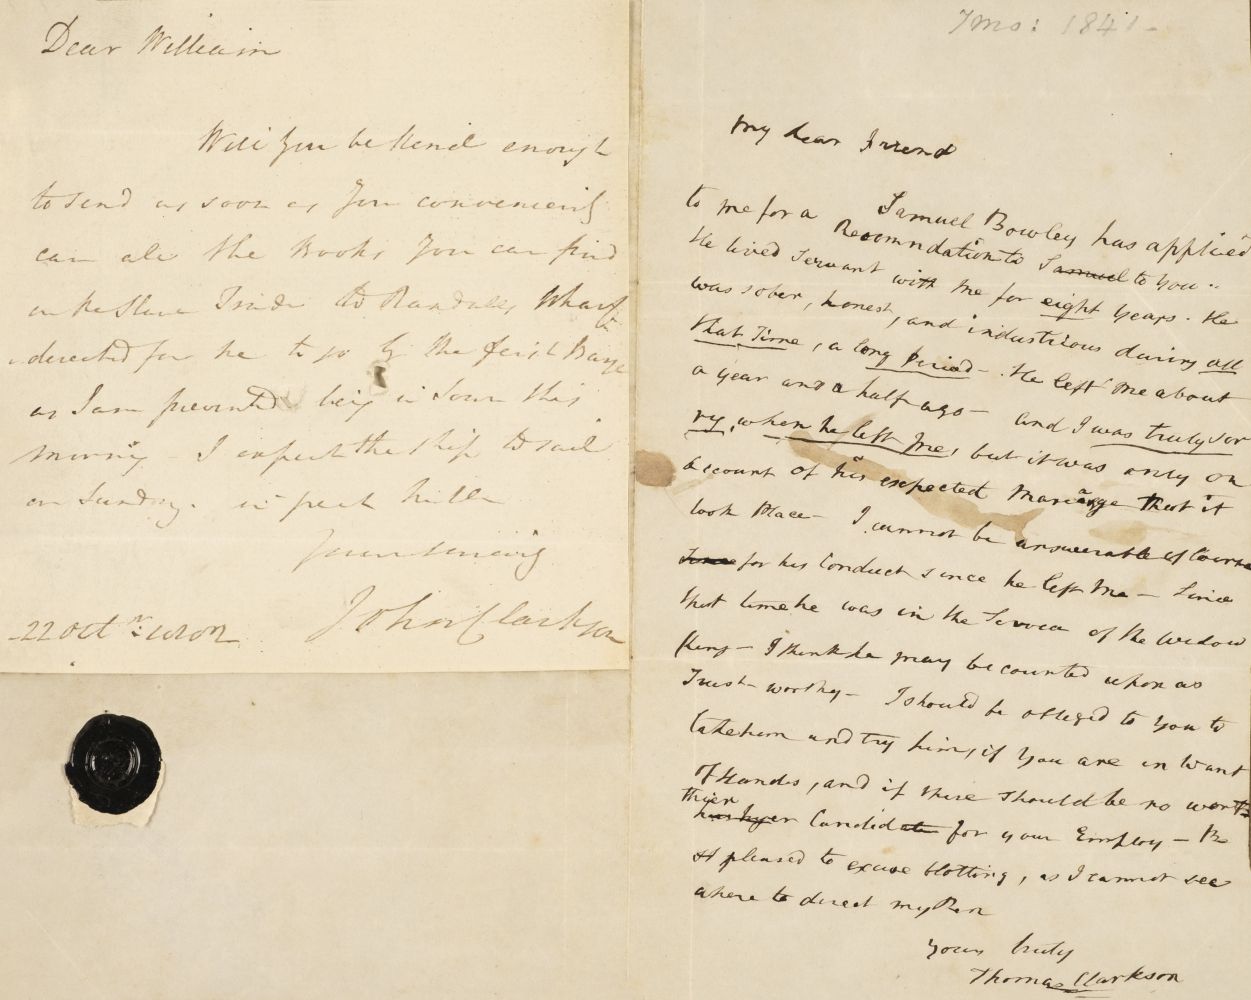 Dear William
Will you be kind enough
to send as soon as you conveniently
can all the Books you can find
on the Slave Trade to Randalls Wharf
directed for me to go by the first Barge
as I am prevented being in Town this
morning - I expect the ship to sail
on Sunday. in great
Yours sincerely
John Clarkson
22 Octr:
7mo: 1841-
My dear Friend
Samuel Bowley has applied
to me for a Recomndation to Samuel to you..
He lived Servant with me for eight years. He
was sober, honest, and industrious during all
that Time, a long period - He left me about
a year and a half ago - and I was truly sor
ry, when he left me, but it was only on
account of his expected Mariage that it
took Place - I cannot be answerable of Course
Since for his Conduct since he left me - Since
that time he was in the Service of the Widow
King - I think he may be counted upon as
Trust-worthy - I should be obliged to you to
take him and try him, if you are in Want
of Hands, and if there should be no wort-
thier Candidate for your Employ - Be
pleased to excuse blotting, as I cannot see
where to direct my Pen
Yours truly
Thomas Clarkson